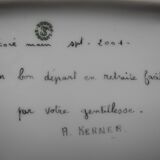 coré main spt. 2001.
n bon départ en retraite fait
par votre gentillesse.
A. KERNER.